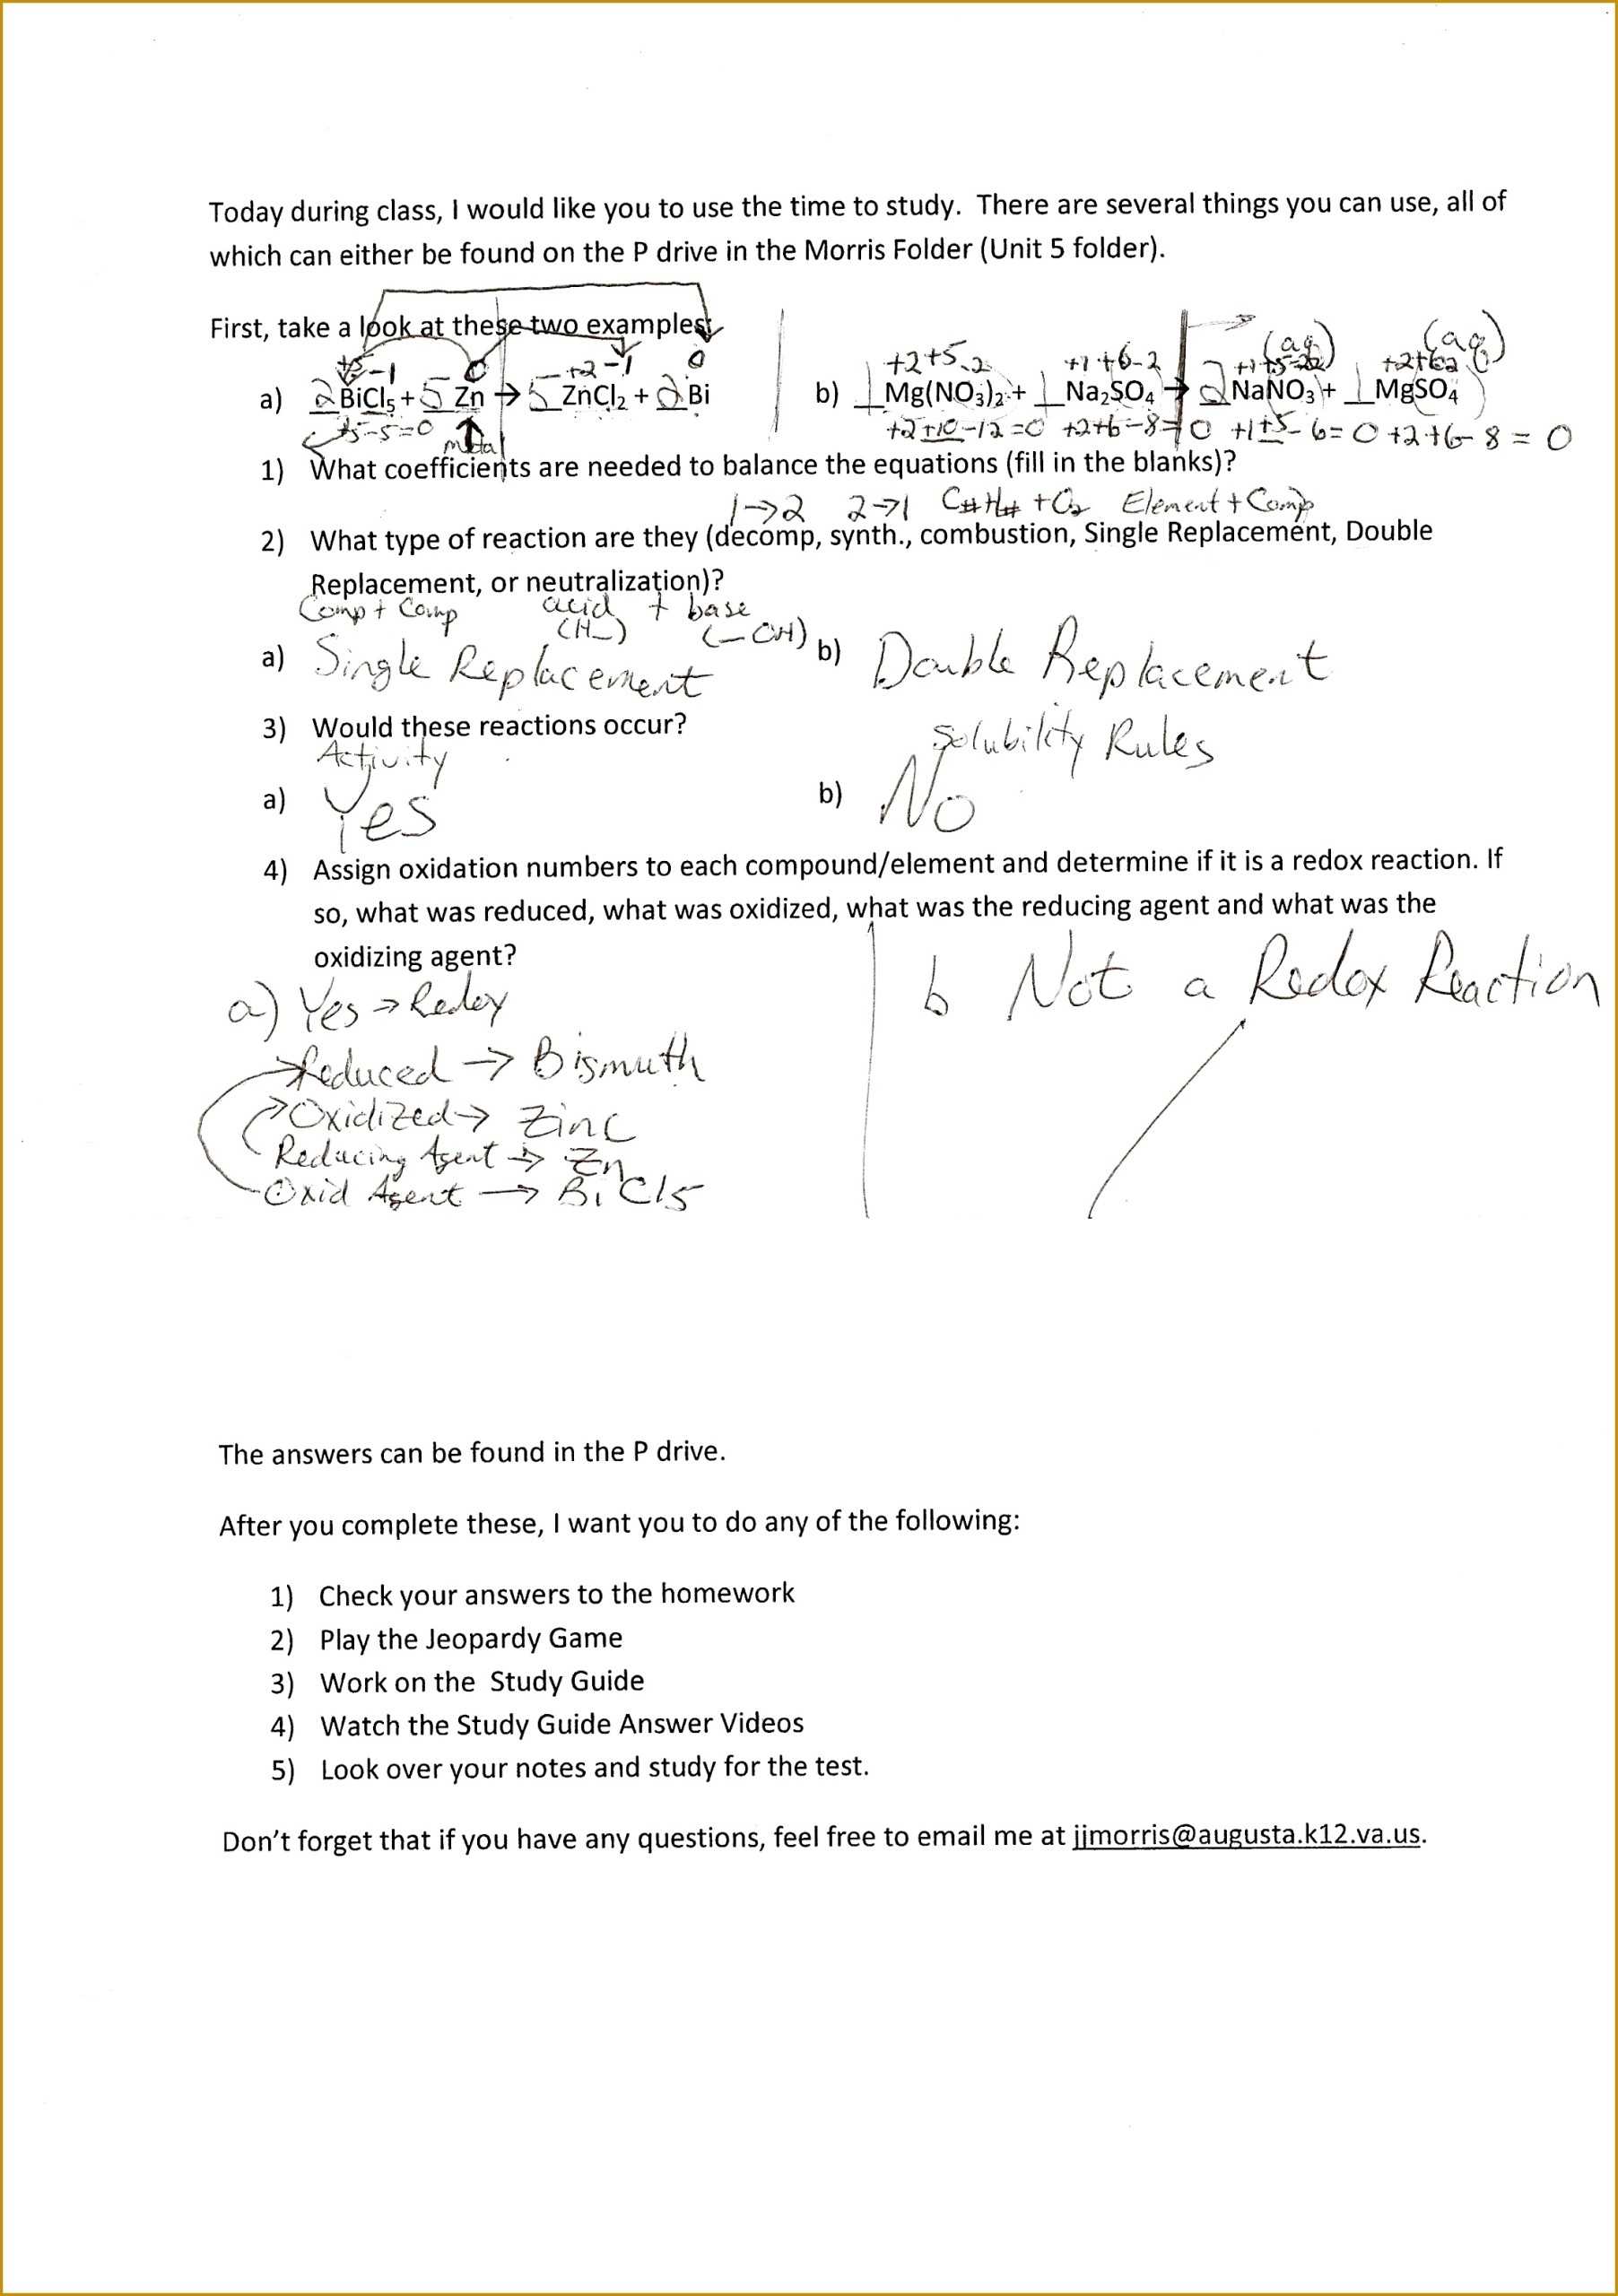 Today during class, I would like you to use the time to study. There are several things you can use, all of
which can either be found on the P drive in the Morris Folder (Unit 5 folder).
First, take a look at these two examples:
+5 -1 0 +2 -1 0
+2 +5 -2 +1 +6 -2 (aq) (aq)
a) 2 BiCl5 + 5 Zn → 5 ZnCl2 + 2 Bi
b) 1 Mg(NO3)2 + 1 Na2SO4 → 2 NaNO3 + 1 MgSO4
+5-5=0 metal
+2+10-12=0 +2+6-8=0 +1+5-6=0 +2+6-8=0
1) What coefficients are needed to balance the equations (fill in the blanks)?
1→2 2→1 C#H# + O2 Element + Comp
2) What type of reaction are they (decomp, synth., combustion, Single Replacement, Double
Replacement, or neutralization)?
Comp + Comp acid + base
(H_) (_OH)
a) Single Replacement b) Double Replacement
3) Would these reactions occur?
Activity Solubility Rules
a) Yes b) No
4) Assign oxidation numbers to each compound/element and determine if it is a redox reaction. If
so, what was reduced, what was oxidized, what was the reducing agent and what was the
oxidizing agent?
a) Yes → Redox b Not a Redox Reaction
Reduced → Bismuth
Oxidized → Zinc
Reducing Agent → Zn
Oxid Agent → BiCl5
The answers can be found in the P drive.
After you complete these, I want you to do any of the following:
1) Check your answers to the homework
2) Play the Jeopardy Game
3) Work on the Study Guide
4) Watch the Study Guide Answer Videos
5) Look over your notes and study for the test.
Don't forget that if you have any questions, feel free to email me at jjmorris@augusta.k12.va.us.